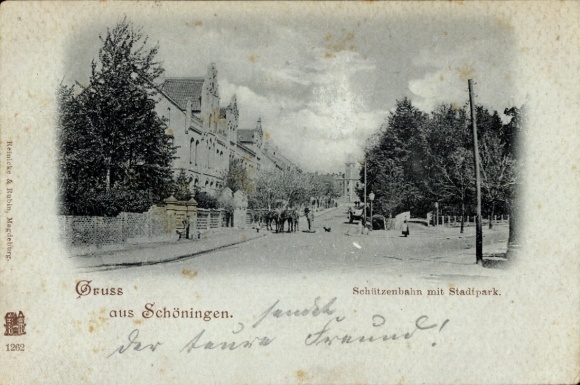 Reinicke & Rubin, Magdeburg.
Schützenbahn mit Stadtpark.
Gruss
aus Schöningen.
sendet
der teure Freund!
1262